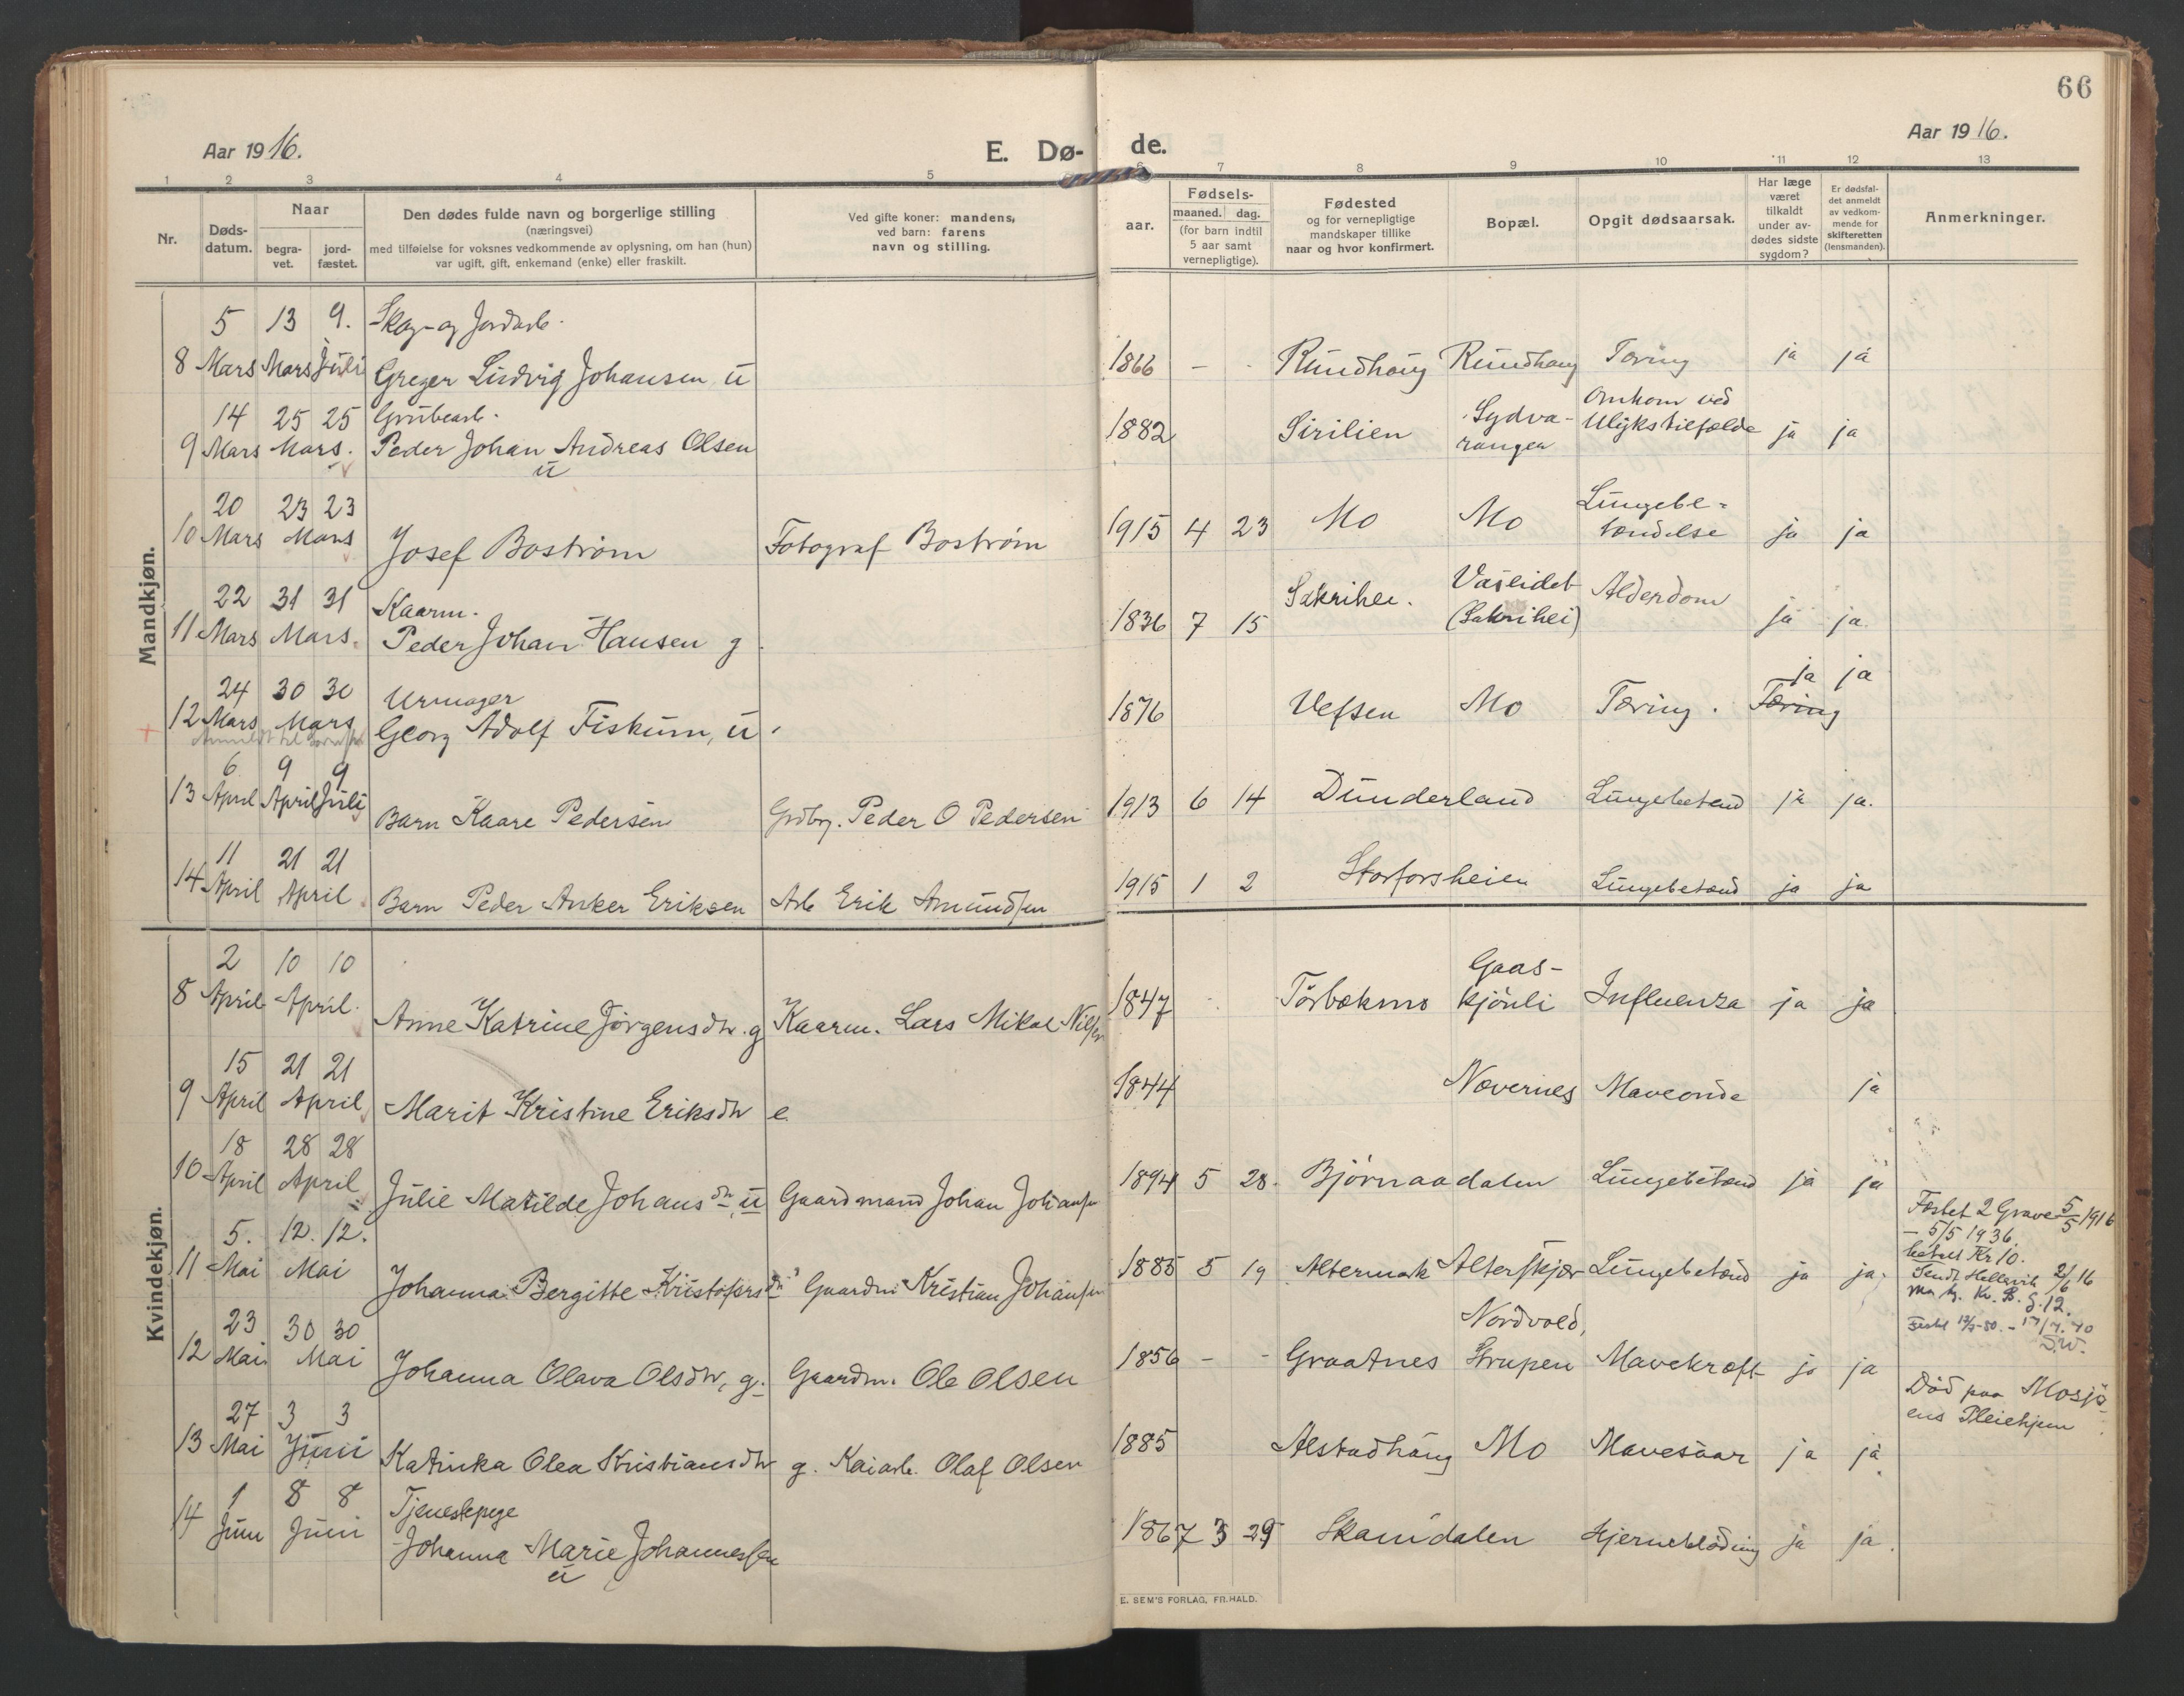 66
Aar 1916.
E. Dø-
de.
Aar 1916.
1 2 3 4 5 6 7 8 9 10 11 12 13
Nr.
Døds-
datum.
Naar
begra-
vet.
jord-
fæstet.
Den dødes fulde navn og borgerlige stilling
(næringsvei)
med tilføielse for voksnes vedkommende av oplysning, om han (hun)
var ugift, gift, enkemand (enke) eller fraskilt.
Ved gifte koner: mandens,
ved barn: farens
navn og stilling.
aar.
Fødsels-
maaned. dag.
(for barn indtil
5 aar samt
vernepligtige).
Fødested
og for vernepligtige
mandskaper tillike
naar og hvor konfirmert.
Bopæl.
Opgit dødsaarsak.
Har læge
været
tilkaldt
under av-
dødes sidste
sygdom?
Er dødsfal-
det anmeldt
av vedkom-
mende for
skifteretten
(lensmanden).
Anmerkninger.
Mandkjøn.
5 13 9. Skog- og Jordarb.
8 Mars Mars Juli Greger Ludvig Johansen u 1866 - - Rundhaug Rundhaug Tæring ja ja
14 25 25 Grubearb. Omkom ved
9 Mars Mars. Peder Johan Andreas Olsen 1882 Sirilien Sydva- Ulykstilfælde ja ja
u rangen
20 23 23 Lungebe-
10 Mars Mars Josef Bostrøm Fotograf Bostrøm 1915 4 23 Mo Mo tændelse ja ja
22 31 31 Kaarm. Sakrihei. Vasleidet Alderdom
11 Mars Mars. Peder Johan Hansen g 1836 7 15 (Sakrihei) ja ja.
24 30 30 Urmager ja ja
12 Mars Mars Georg Adolf Fiskum, u. 1876 Vefsen Mo Tæring. Tæring
6 9 9
13 April April Juli Barn Kaare Pedersen Grdbr. Peder O Pedersen 1913 6 14 Dunderland Lungebetænd ja ja.
11 21 21
14 April April Barn Peder Anker Eriksen Arb Erik Amundsen 1915 1 2 Storforsheien Lungebetænd ja ja
Kvindekjøn.
2 10 10 Gaas-
8 April April. Anne Katrine Jørgensdtr. g Kaarm. Lars Mikal Nilsen 1847 Tørbækmo kjønli Influenza ja ja
15 21 21
9 April April Marit Kristine Eriksdtr e. 1844 Nævernes Maveonde ja
18 28 28
10 April April Julie Matilde Johansdtr, u Gaardmand Johan Johansen 1894 5 28. Bjørnaadalen Lungebetænd ja ja
Fæstet 2 Grave 5/5 1916
- 5/5 1936.
betalt Kr 10.
5. 12. 12.
11 Mai Mai Johanna Bergitte Kristofersdtr Gaardm Kristian Johansen 1885 5 19 Altermark Alterskjær Lungebetænd ja ja.
Sendt Hellavik 2/6 16
23 30 30 Nordvold,
12 Mai Mai Johanna Olava Olsdtr, g. Gaardm. Ole Olsen 1856 - - Graatnes Strupen Mavekræft ja ja
D.W.
Død paa Mosjø-
ens Pleiehjem
27 3 3
13 Mai Juni Katinka Olea Kristiansdtr g. Kaiarb. Olaf Olsen 1885 Alstadhaug Mo Mavesaar ja ja.
1 8 8 Tjenestepige
14 Juni Juni Johanna Marie Johannessen 1867 3 29 Skamdalen Hjerneblødning ja ja.
u
E. SEM'S FORLAG, FR.HALD.